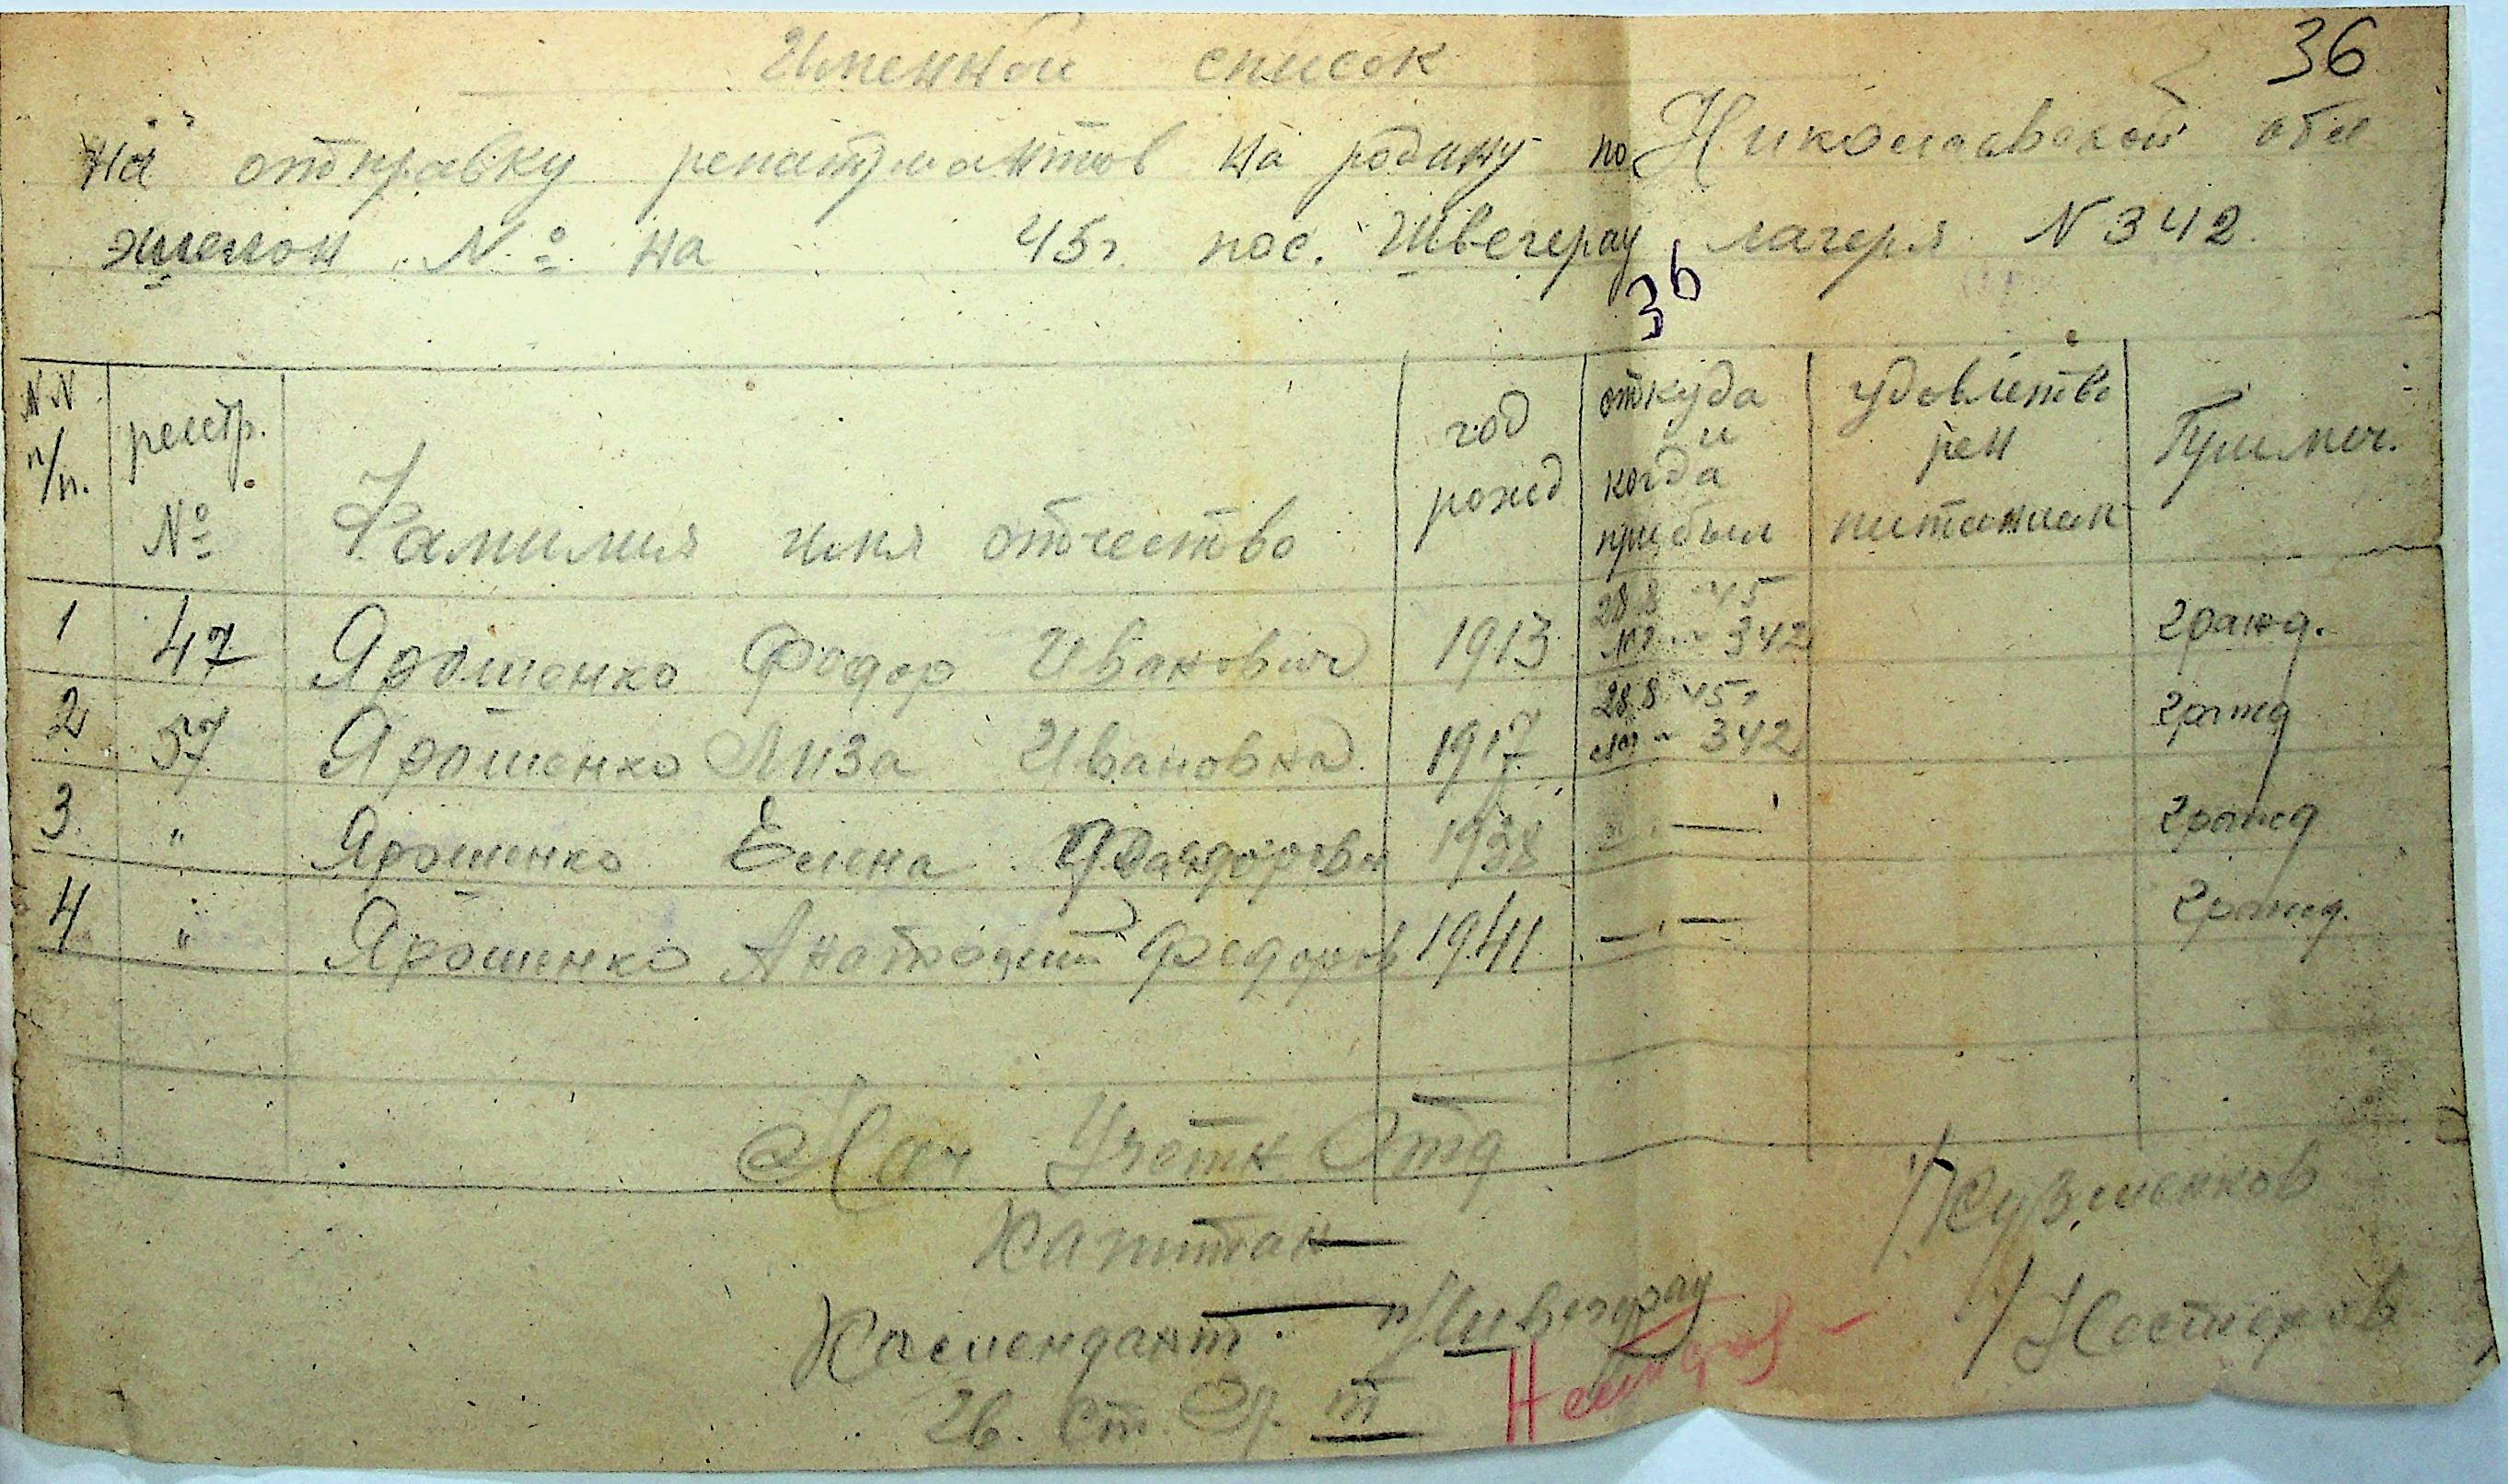 36
Именной список
на отправку репатриантов на родину по Николаевской обл
эшелон №  на  45г. пос. Швегерау лагеря N 342
36
NN п/п. регистр. № Фамилия имя отчество год рожд откуда и когда прибыл удовлетворен питанием Примеч.
1 47 Ярошенко Федор Иванович 1913 28 8 45 342 гражд.
2 57 Ярошенко Лиза Ивановна 1917 28 8 45г 342 гражд
3 " Ярошенко Елена 1938 " — гражд
4 " Ярошенко Анатолий Федоров 1941 — " — гражд.
Нач Учетн Отд
Капитан /Кузменков
Комендант п/Швегерау /Нестеров
Гв. Ст.